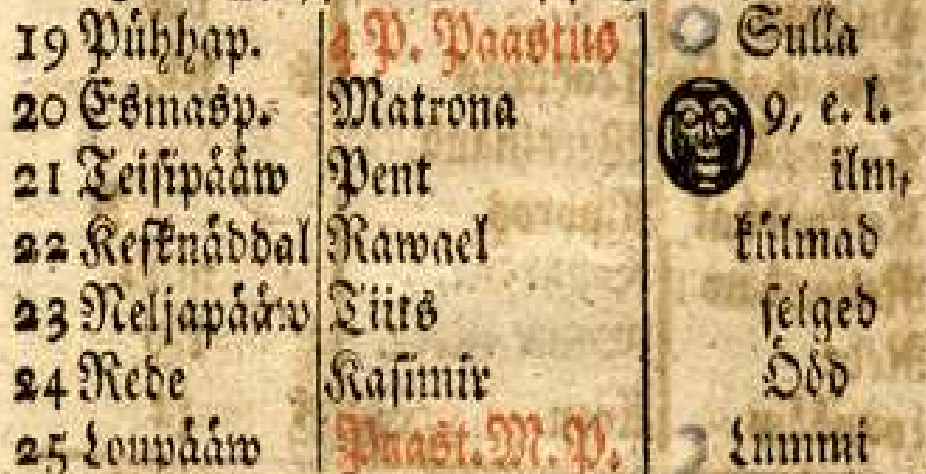 19 Pühhap. 4 P. Paastus Sulla
20 Esmasp. Matrona 9, e. l.
21 Teisipååw Pent ilm,
22 Kesknäddal Rawael külmad
23 Neljapääw Tiits selged
24 Rede Kasimir Ödd
25 Loupååw Paast. M. P. Lummi